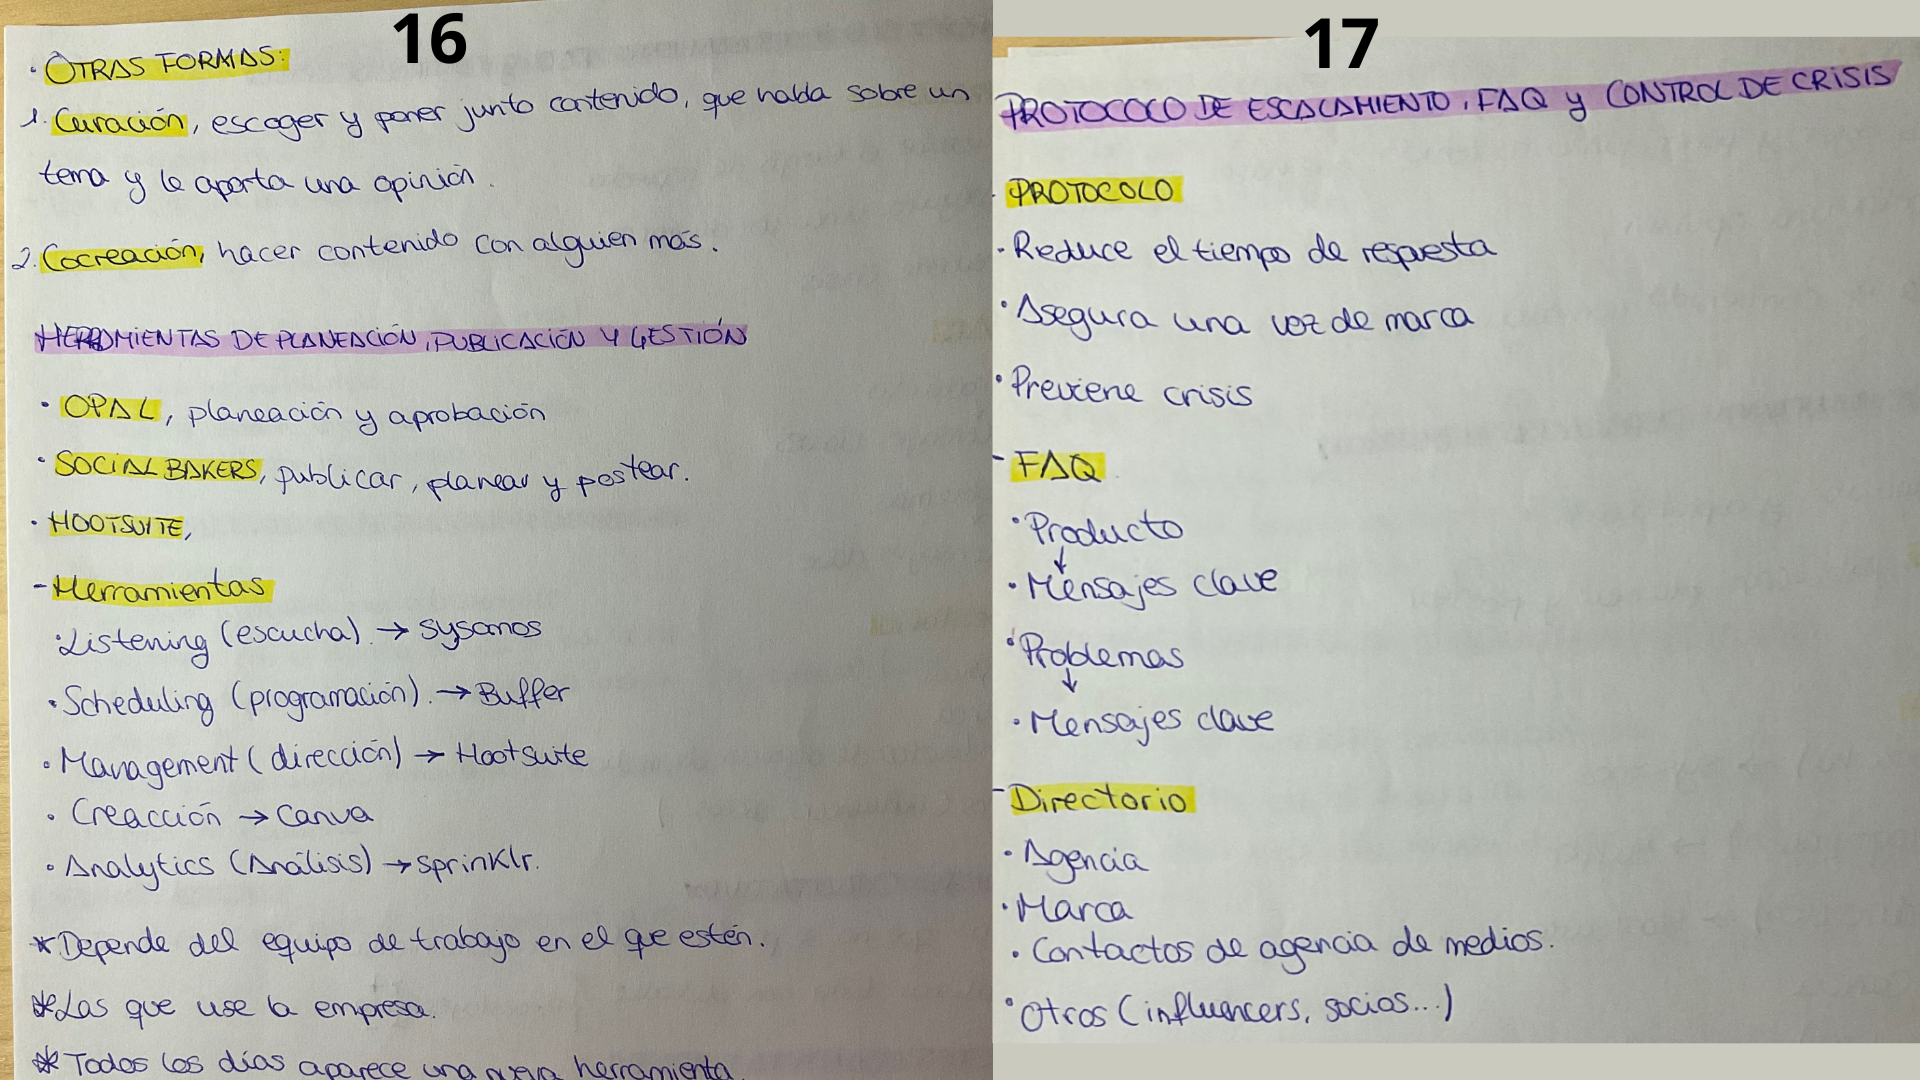 16
· OTRAS FORMAS:
1. Curación, escoger y poner junto contenido, que habla sobre un
tema y le aporta una opinión.
2. Cocreación, hacer contenido con alguien más.
HERRAMIENTAS DE PLANEACIÓN, PUBLICACIÓN Y GESTIÓN
· OPAL, planeación y aprobación
· SOCIAL BAKERS, publicar, planear y postear.
· HOOTSUITE,
- Herramientas
· Listening (escucha). → sysomos
· Scheduling (programación). → Buffer
· Management (dirección) → Hootsuite
· Creacción → Canva
· Analytics (Análisis) → sprinklr.
* Depende del equipo de trabajo en el que estén.
* Las que use la empresa.
* Todos los días aparece una nueva herramienta.
17
PROTOCOCO DE ESCALAMIENTO, FAQ y CONTROL DE CRISIS
- PROTOCOLO
· Reduce el tiempo de respuesta
· Asegura una voz de marca
· Previene crisis
- FAQ
· Producto
↓
· Mensajes clave
· Problemas
↓
· Mensajes clave
- Directorio
· Agencia
· Marca
· Contactos de agencia de medios.
· Otros (influencers, socios...)